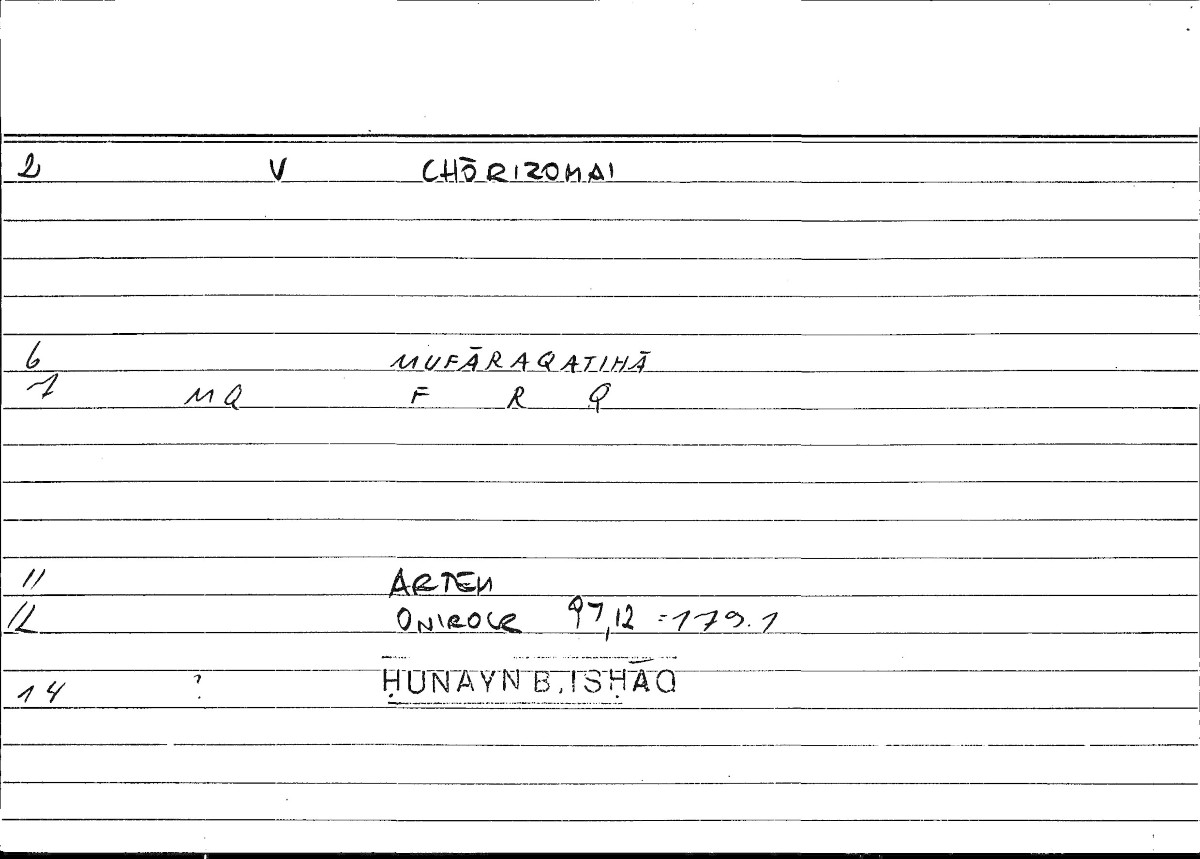 2 V CHŌRIZOMAI
6 MUFĀRAQATIHĀ
7 MQ F R Q
11 ARTEM
12 ONIROCR 97,12 =179.1
14 ? ḤUNAYN B. ISḤĀQ